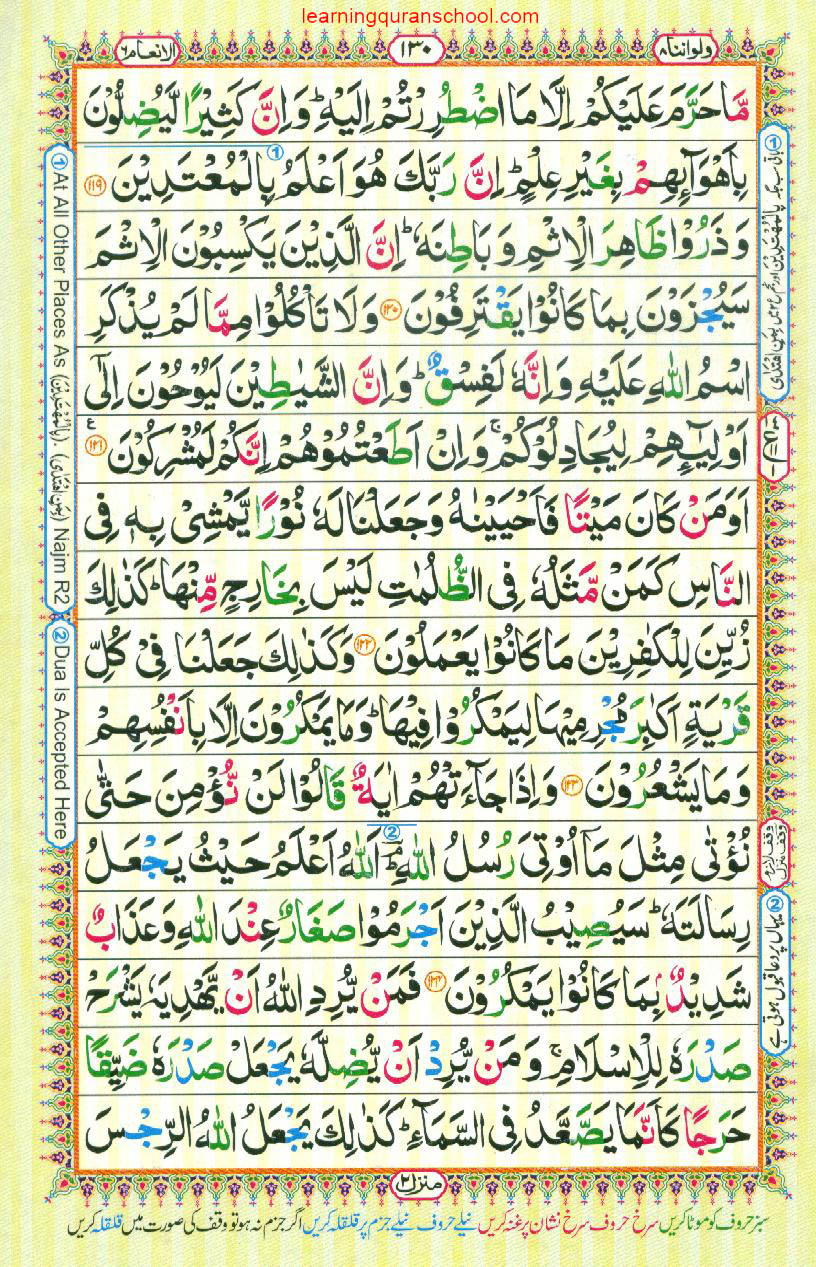 learningquranschool.com
ولواننا ۸
۱۳۰
الانعام ۶
مَّا حَرَّمَ عَلَيْكُمْ اِلَّا مَا اضْطُرِرْتُمْ اِلَيْهِ ؕ وَاِنَّ كَثِيْرًا لَّيُضِلُّوْنَ
بِاَهْوَآىِٕهِمْ بِغَيْرِ عِلْمٍ ؕ اِنَّ رَبَّكَ هُوَ اَعْلَمُ بِالْمُعْتَدِيْنَ ۱۱۹
وَذَرُوْا ظَاهِرَ الْاِثْمِ وَبَاطِنَهٗ ؕ اِنَّ الَّذِيْنَ يَكْسِبُوْنَ الْاِثْمَ
سَيُجْزَوْنَ بِمَا كَانُوْا يَقْتَرِفُوْنَ ۱۲۰ وَلَا تَاْكُلُوْا مِمَّا لَمْ يُذْكَرِ
اسْمُ اللّٰهِ عَلَيْهِ وَاِنَّهٗ لَفِسْقٌ ؕ وَاِنَّ الشَّيٰطِيْنَ لَيُوْحُوْنَ اِلٰٓى
اَوْلِيٰٓـِٕهِمْ لِيُجَادِلُوْكُمْ ۚ وَاِنْ اَطَعْتُمُوْهُمْ اِنَّكُمْ لَمُشْرِكُوْنَ ۱۲۱
اَوَمَنْ كَانَ مَيْتًا فَاَحْيَيْنٰهُ وَجَعَلْنَا لَهٗ نُوْرًا يَّمْشِيْ بِهٖ فِى
النَّاسِ كَمَنْ مَّثَلُهٗ فِى الظُّلُمٰتِ لَيْسَ بِخَارِجٍ مِّنْهَا ؕ كَذٰلِكَ
زُيِّنَ لِلْكٰفِرِيْنَ مَا كَانُوْا يَعْمَلُوْنَ ۱۲۲ وَكَذٰلِكَ جَعَلْنَا فِيْ كُلِّ
قَرْيَةٍ اَكٰبِرَ مُجْرِمِيْهَا لِيَمْكُرُوْا فِيْهَا ؕ وَمَا يَمْكُرُوْنَ اِلَّا بِاَنْفُسِهِمْ
وَمَا يَشْعُرُوْنَ ۱۲۳ وَاِذَا جَآءَتْهُمْ اٰيَةٌ قَالُوْا لَنْ نُّؤْمِنَ حَتّٰى
نُؤْتٰى مِثْلَ مَآ اُوْتِيَ رُسُلُ اللّٰهِ ؔۘؕ اَللّٰهُ اَعْلَمُ حَيْثُ يَجْعَلُ
رِسَالَتَهٗ ؕ سَيُصِيْبُ الَّذِيْنَ اَجْرَمُوْا صَغَارٌ عِنْدَ اللّٰهِ وَعَذَابٌ
شَدِيْدٌۢ بِمَا كَانُوْا يَمْكُرُوْنَ ۱۲۴ فَمَنْ يُّرِدِ اللّٰهُ اَنْ يَّهْدِيَهٗ يَشْرَحْ
صَدْرَهٗ لِلْاِسْلَامِ ۚ وَمَنْ يُّرِدْ اَنْ يُّضِلَّهٗ يَجْعَلْ صَدْرَهٗ ضَيِّقًا
حَرَجًا كَاَنَّمَا يَصَّعَّدُ فِى السَّمَآءِ ؕ كَذٰلِكَ يَجْعَلُ اللّٰهُ الرِّجْسَ
منزل ۲
سبز حروف کو موٹا کریں سرخ حروف سرخ نشان پر غنہ کریں نیلے حروف نیلے جزم پر قلقلہ کریں اگر جزم نہ ہو تو وقف کی صورت میں قلقلہ کریں
① At All Other Places As (بِالْمُهْتَدِيْنَ), (بِمَنِ اهْتَدٰى) Najm R2
② Dua is Accepted Here
② یہاں پر دعا قبول ہوتی ہے